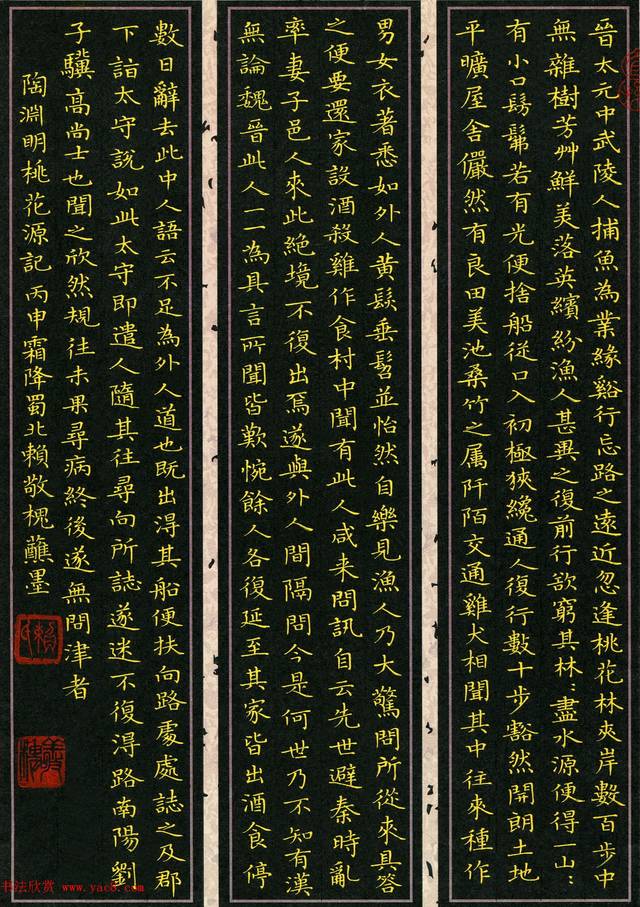 晉太元中武陵人捕魚為業緣谿行忘路之遠近忽逢桃花林夾岸數百步中
無雜樹芳艸鮮美落英繽紛漁人甚異之復前行欲窮其林:盡水源便得一山:
有小口髣髴若有光便捨船從口入初極狹纔通人復行數十步豁然開朗土地
平曠屋舍儼然有良田美池桑竹之属阡陌交通雞犬相聞其中往來種作
男女衣著悉如外人黄髮垂髫並怡然自樂見漁人乃大驚問所從來具答
之便要還家設酒殺雞作食村中聞有此人咸来問訊自云先世避秦時亂
率妻子邑人來此絶境不復出焉遂與外人間隔問今是何世乃不知有漢
無論魏晉此人一一為具言所聞皆歎惋餘人各復延至其家皆出酒食停
數日辭去此中人語云不足為外人道也既出得其船便扶向路處處誌之及郡
下詣太守説如此太守即遣人隨其往尋向所誌遂迷不復得路南陽劉
子驥高尚士也聞之欣然規往未果尋病終後遂無問津者
陶淵明桃花源記丙申霜降蜀北賴敬槐蘸墨
书法欣赏 www.yac8.com